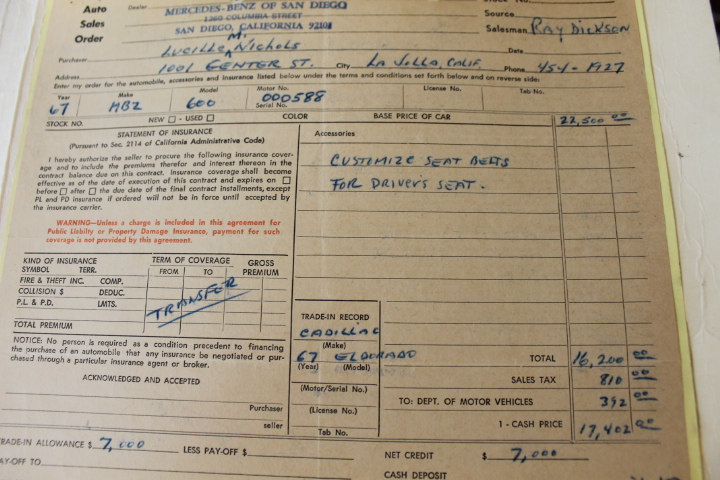 Auto
Sales
Order
Dealer MERCEDES-BENZ OF SAN DIEGO
1260 COLUMBIA STREET
SAN DIEGO, CALIFORNIA 92101
Source
Salesman RAY DICKSON
Purchaser LUCILLE M. NICHOLS
Date
Address 1001 CENTER ST. City LA JOLLA, CALIF. Phone 454-1927
Enter my order for the automobile, accessories and insurance listed below under the terms and conditions set forth below and on reverse side:
Year Make Model Motor No. License No. Tab No.
67 MBZ 600 000588
Serial No.
STOCK NO. NEW - USED COLOR BASE PRICE OF CAR 22,500 00
STATEMENT OF INSURANCE
(Pursuant to Sec. 2114 of California Administrative Code)
I hereby authorize the seller to procure the following insurance cover-
age and to include the premiums therefor and interest thereon in the
contract balance due on this contract. Insurance coverage shall become
effective as of the date of execution of this contract and expires on
before after the due date of the final contract installments, except
PL and PD insurance if ordered will not be in force until accepted by
the insurance carrier.
WARNING—Unless a charge is included in this agreement for
Public Liabilty or Property Damage Insurance, payment for such
coverage is not provided by this agreement.
KIND OF INSURANCE TERM OF COVERAGE GROSS
SYMBOL TERR. FROM TO PREMIUM
FIRE & THEFT INC. COMP.
COLLISION $ DEDUC.
P.L. & P.D. LMTS.
TRANSFER
TOTAL PREMIUM
NOTICE: No person is required as a condition precedent to financing
the purchase of an automobile that any insurance be negotiated or pur-
chased through a particular insurance agent or broker.
ACKNOWLEDGED AND ACCEPTED
Purchaser
seller
Accessories
CUSTIMIZE SEAT BELTS
FOR DRIVER'S SEAT.
TRADE-IN RECORD
CADILLAC
(Make)
67 ELDORADO
(Year) (Model)
(Motor/Serial No.)
(License No.)
Tab No.
TOTAL 16,200 00
SALES TAX 810 00
TO: DEPT. OF MOTOR VEHICLES 392 00
1 - CASH PRICE 17,402 00
RADE-IN ALLOWANCE $ 7,000 LESS PAY-OFF $ NET CREDIT $ 7,000
AY-OFF TO CASH DEPOSIT